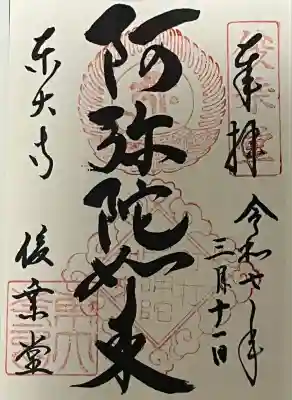 奉拝
令和七年
三月十一日
阿弥陀如来
東大寺
俊乗堂